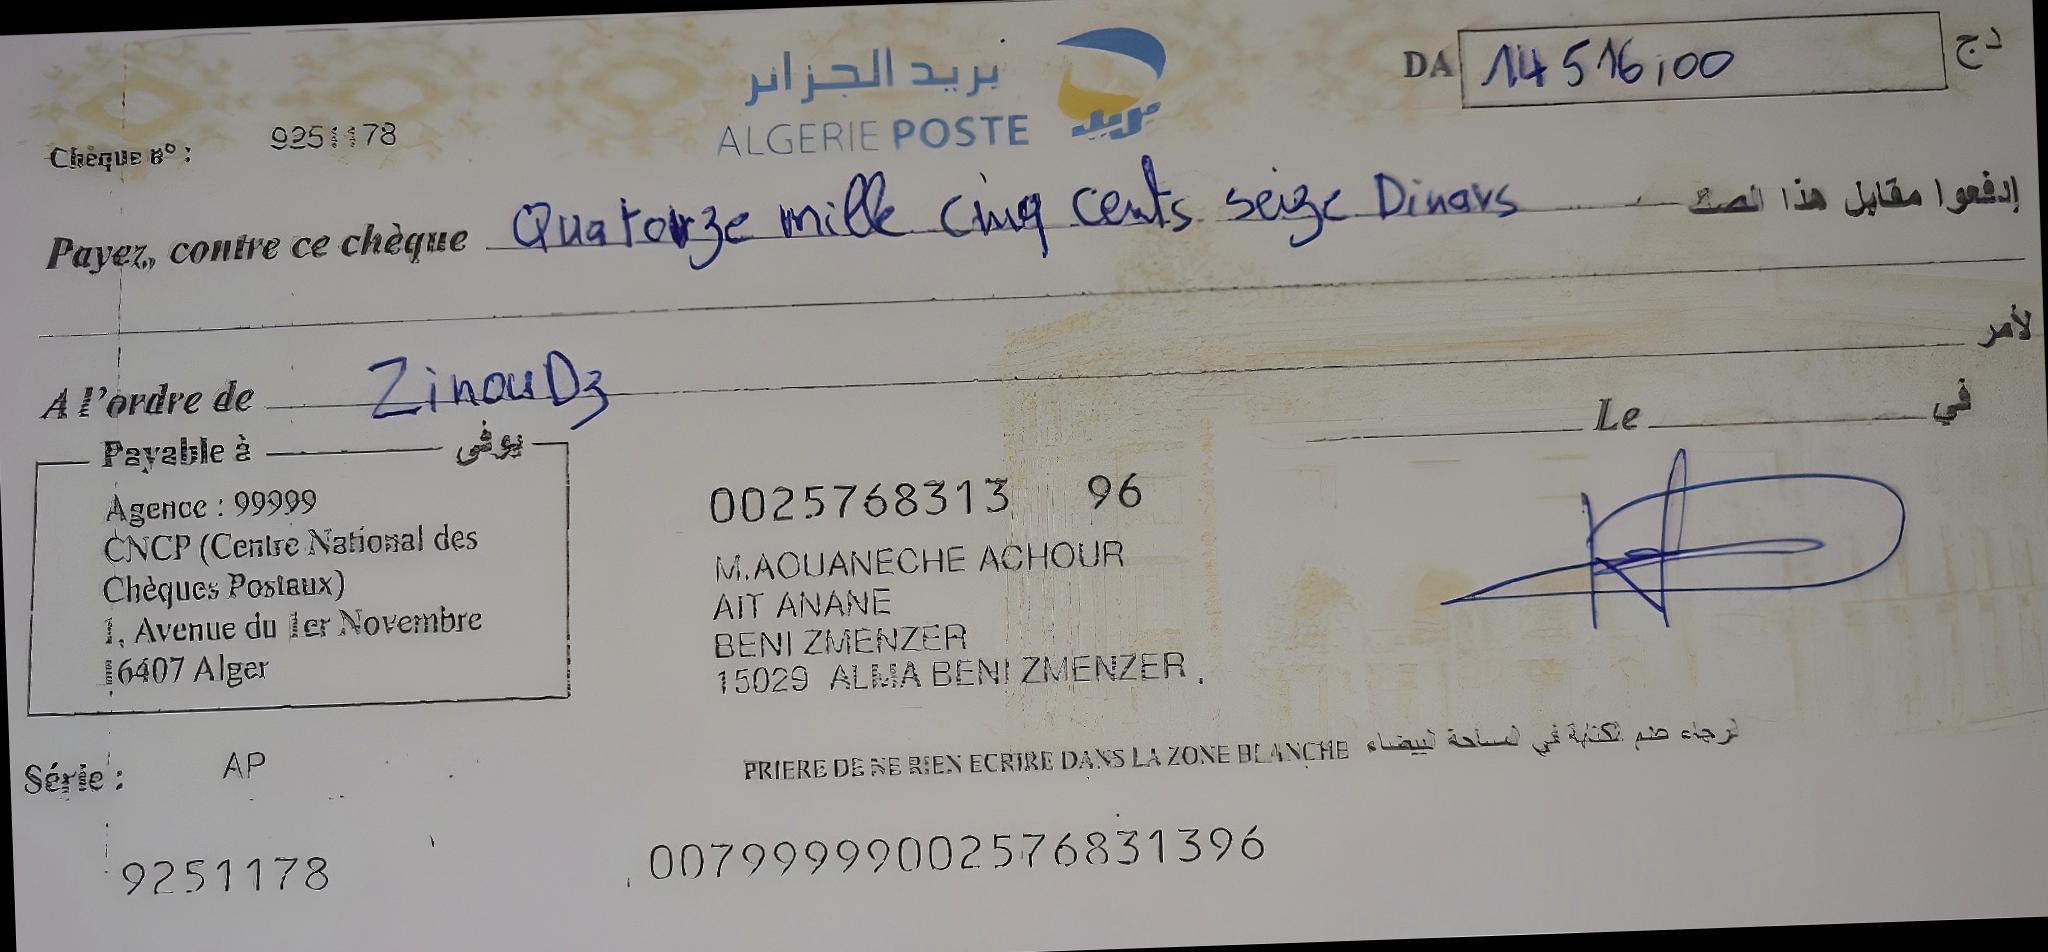 بريد الجزائر
ALGERIE POSTE
DA 14 516,00 دج
Chèque n° : 9251178
Payez, contre ce chèque Quatorze mille cinq cents seize Dinars إدفعوا مقابل هذا الصك
لأمر
A l'ordre de ZinouDz
Le في
Payable à يوفى
Agence : 99999
CNCP (Centre National des
Chèques Postaux)
1, Avenue du 1er Novembre
16407 Alger
0025768313 96
M.AOUANECHE ACHOUR
AIT ANANE
BENI ZMENZER
15029 ALMA BENI ZMENZER
Série : AP
PRIERE DE NE RIEN ECRIRE DANS LA ZONE BLANCHE الرجاء عدم الكتابة في المساحة البيضاء
9251178
00799999002576831396